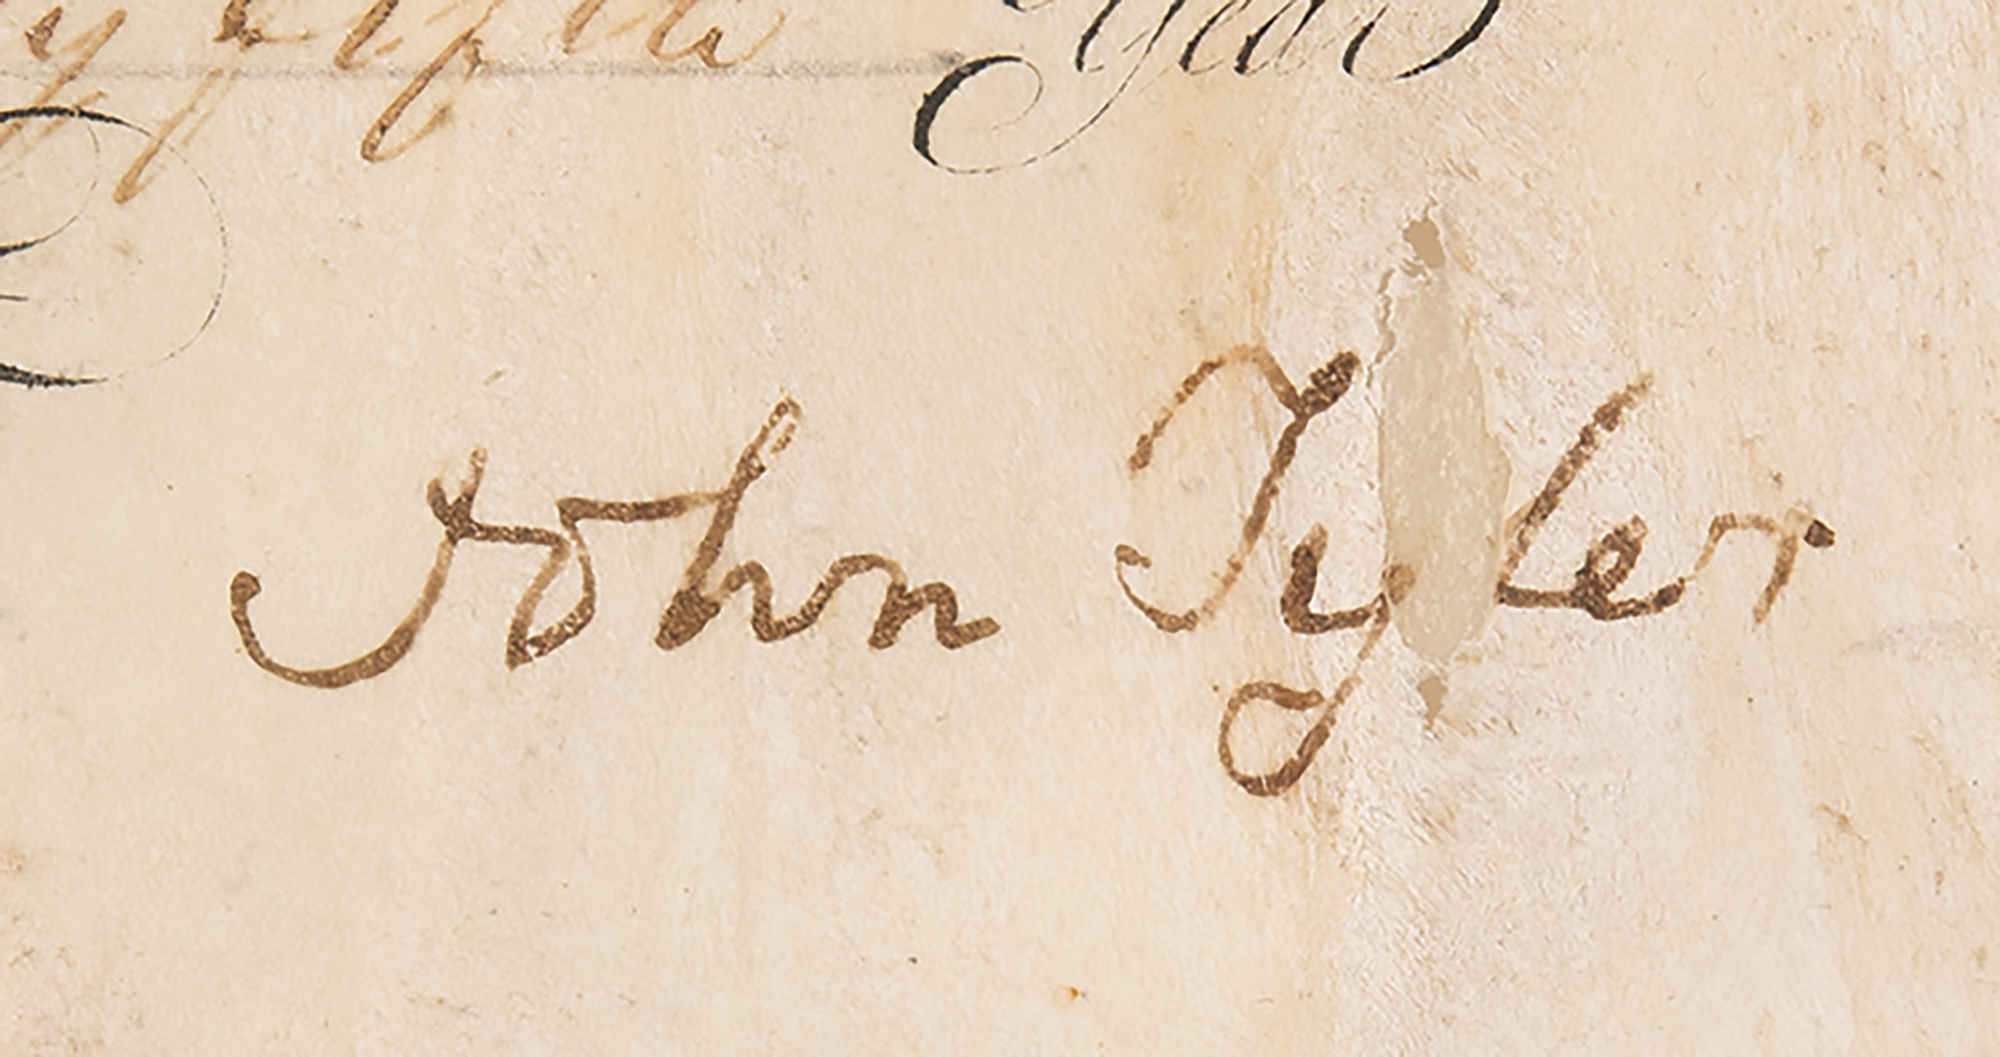 fifth Year
John Tyler